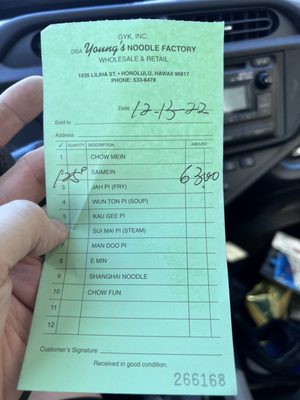 GYK, INC.
DBA Young's NOODLE FACTORY
WHOLESALE & RETAIL
1635 LILIHA ST. • HONOLULU, HAWAII 96817
PHONE: 533-6478
Date 12-13-22
Sold to
Address
✓ QUANTITY DESCRIPTION AMOUNT
1 CHOW MEIN
SAIMEIN 6300
3 JAH PI (FRY)
4 WUN TON PI (SOUP)
5 KAU GEE PI
SUI MAI PI (STEAM)
MAN DOO PI
8 E MIN
9 SHANGHAI NOODLE
10 CHOW FUN
11
12
Customer's Signature
Received in good condition.
266168